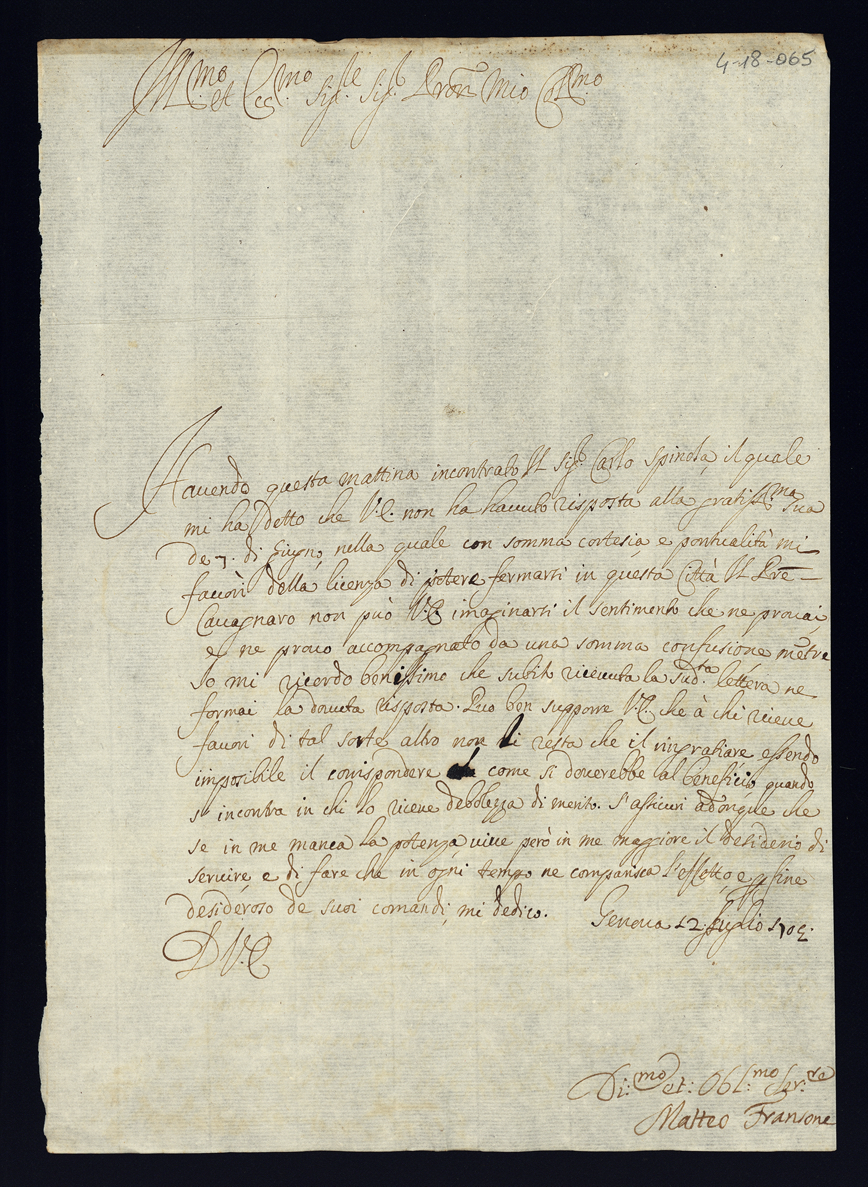 4-18-065
Ill.mo et Ecc.mo Sig.re Sig.r Pron Mio Coll.mo
Havendo questa mattina incontrato Il Sig.r Carlo Spinola, il quale
mi ha detto che V.E. non ha havuto risposta alla gratiss.ma sua
de 7. di Giugno, nella quale con somma cortesia e pontualità mi
favorì della licenza di potere fermarsi in questa Città Il Pre
Cavagnaro non può V.E. imaginarsi il sentimento che ne provai,
e ne provo accompagnato da una somma confusione mentre
Io mi ricordo benissimo che subito ricevuta la sud.ta lettera ne
formai la dovuta risposta. Può ben supporre V.E. che à chi riceve
favori di tal sorte altro non li resta che il ringratiare essendo
imposibile il corrispondere come si doverebbe al beneficio quando
s'incontra in chi lo riceve debolezza di merito. S'assicuri adonque che
se in me manca la potenza vive però in me maggiore il desiderio di
servire, e di fare che in ogni tempo ne comparisca l'effetto, e p fine
desideroso de suoi comandi, mi dedico. Genova 12 Luglio
D V.E.
Di:mo et: Obl:mo Ser:re
Matteo Fransone